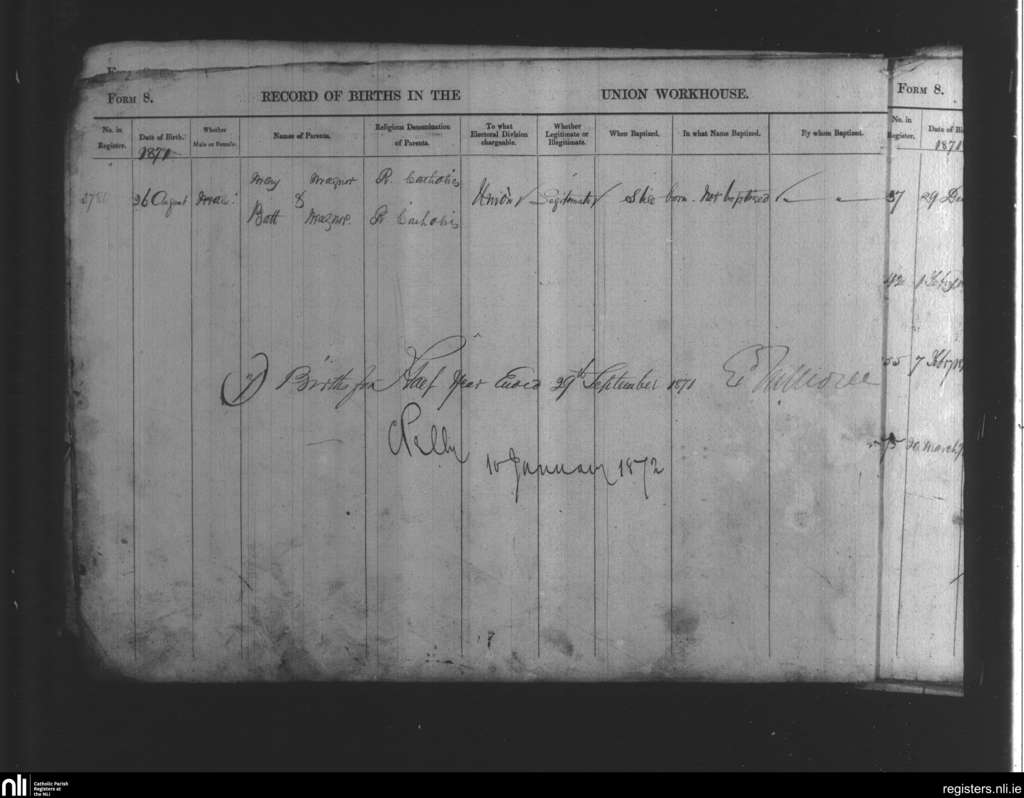 FORM 8. RECORD OF BIRTHS IN THE UNION WORKHOUSE.
No. in Register. Date of Birth. Whether Male or Female. Names of Parents. Religious Denomination of Parents. To what Electoral Division chargeable. Whether Legitimate or Illegitimate. When Baptized. In what Name Baptized. By whom Baptized.
1871
26 August Male Mary Magner R. Catholic Union Legitimate Still born. Not baptized
&
Batt Magner. R Catholic
Births for Half Year Ended 29th September 1871
10 January 1872
FORM 8.
No. in Register. Date of Bi
1871
37 29 De
42
55 7
75 30 March
nli
Catholic Parish
Registers at
the NLI
registers.nli.ie